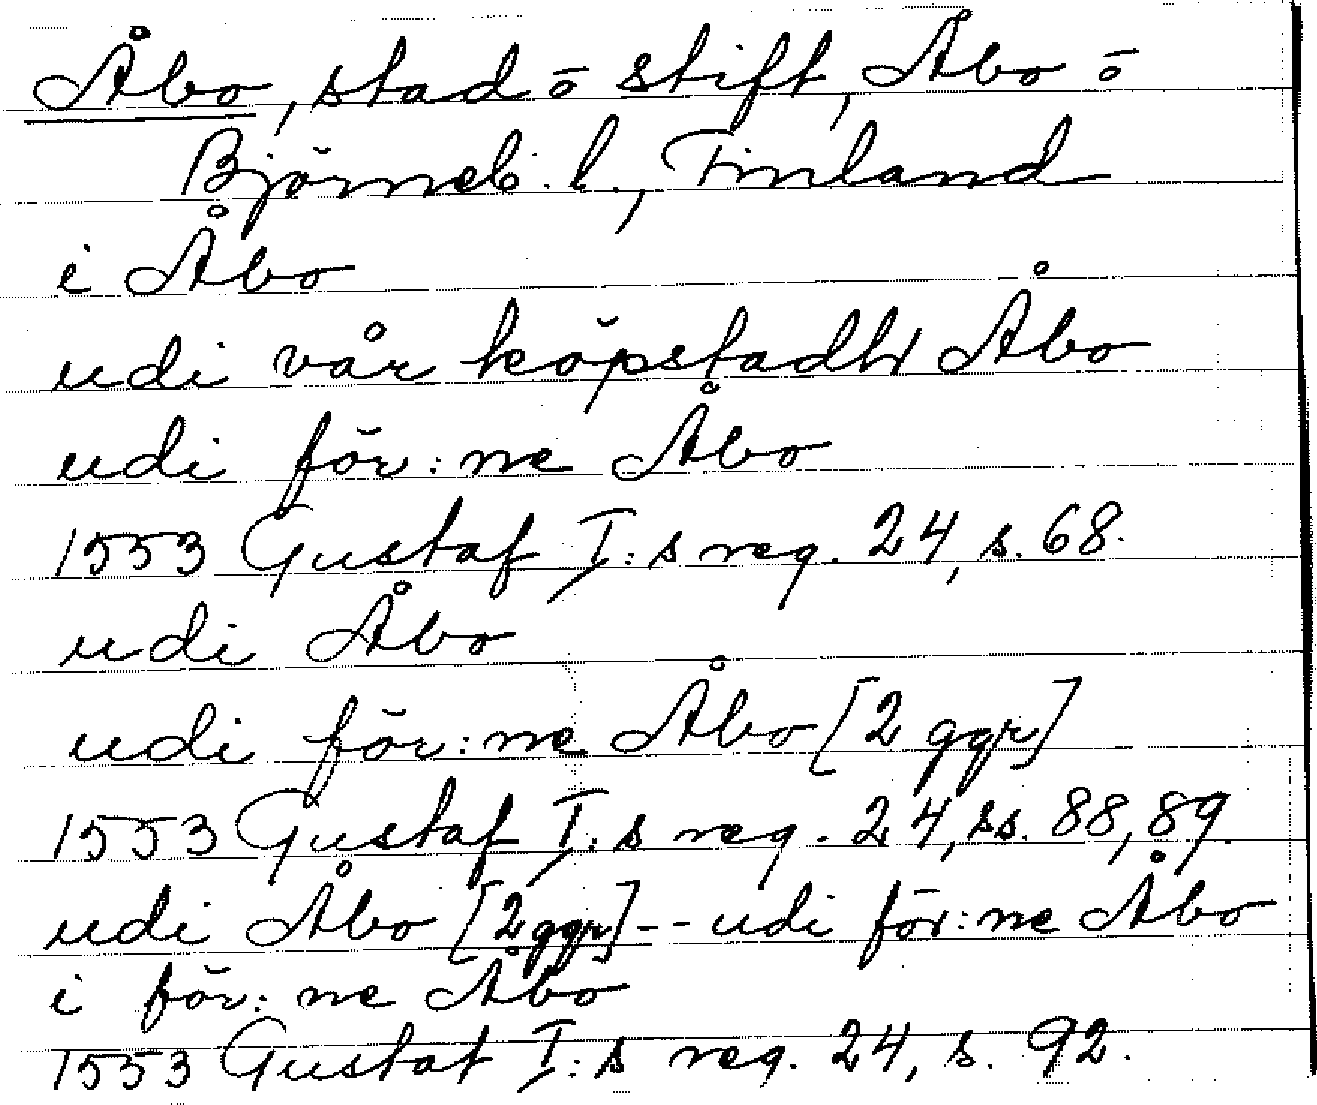 Åbo, stad o stift, Åbo o
Björneb. l., Finland
i Åbo
udi vår köpstadh Åbo
udi för:ne Åbo
1553 Gustaf I:s reg. 24, s. 68.
udi Åbo
udi för:ne Åbo [2 ggr]
1553 Gustaf I:s reg. 24, ss. 88, 89.
udi Åbo [2 ggr] - - udi för:ne Åbo
i för:ne Åbo
1553 Gustaf I:s reg. 24, s. 92.